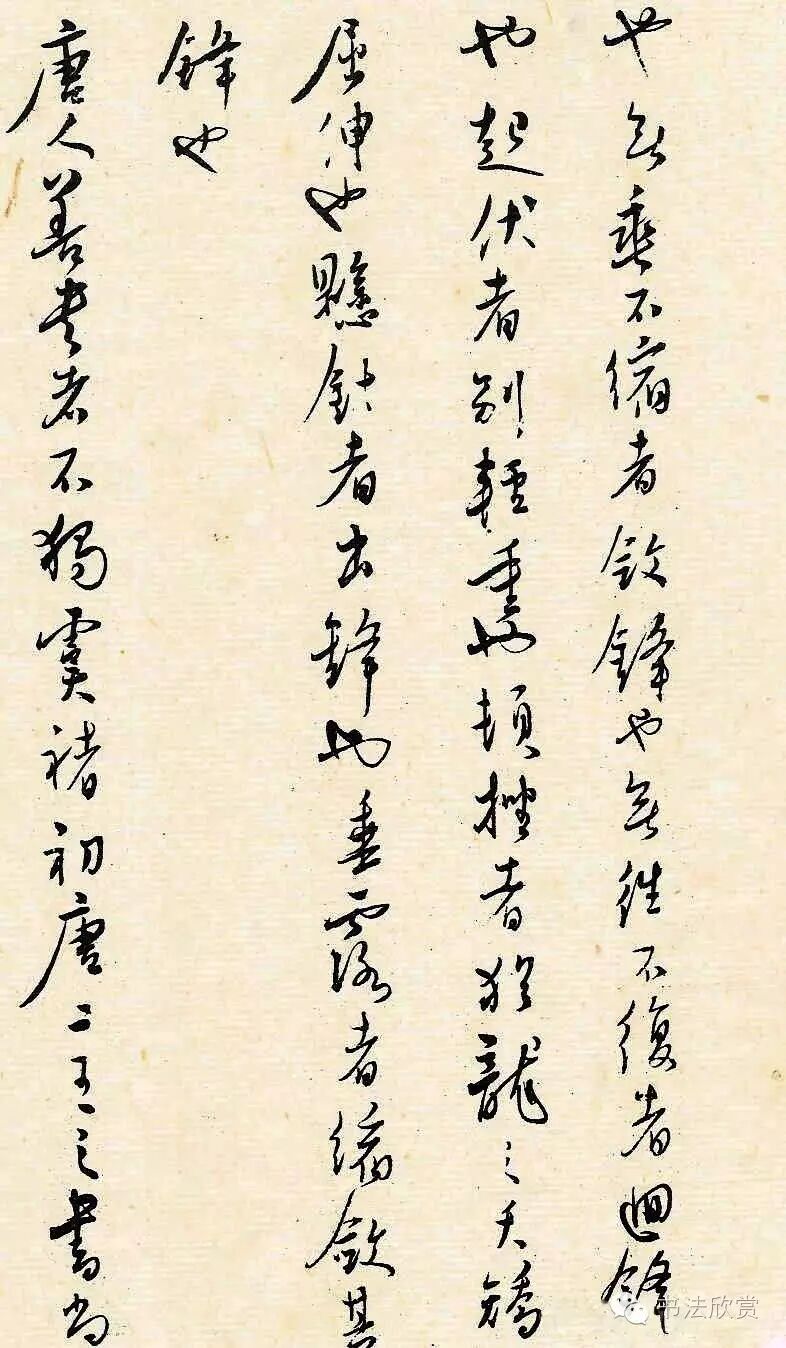 也無垂不縮者斂鋒也無往不復者迴鋒
也起伏者別輕重也頓挫者猶龍之夭矯
屈伸也懸針者出鋒也垂露者縮斂其
鋒也
唐人善書者不獨虞褚初唐二王之書尚
书法欣赏